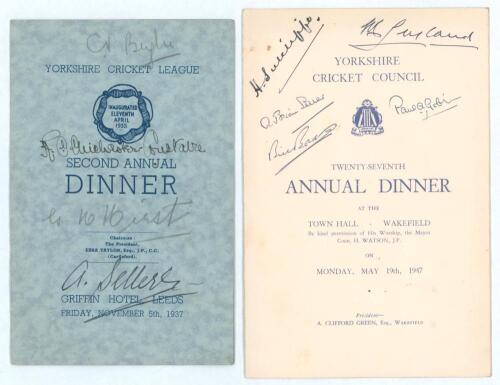 YORKSHIRE CRICKET LEAGUE
INAUGURATED
ELEVENTH
APRIL
SECOND ANNUAL
DINNER
Chairman:
The President,
EZRA TAYLOR, Esq., J.P., C.C.
(Castleford).
A. Sellers
GRIFFIN HOTEL, LEEDS
FRIDAY, NOVEMBER 5th, 1937
H Sutcliffe.
YORKSHIRE
CRICKET COUNCIL
TWENTY-SEVENTH
ANNUAL DINNER
AT THE
TOWN HALL - WAKEFIELD
By kind permission of His Worship, the Mayor
Coun. H. WATSON, J.P.
ON
MONDAY, MAY 19th, 1947
President—
A. CLIFFORD GREEN, Esq., WAKEFIELD